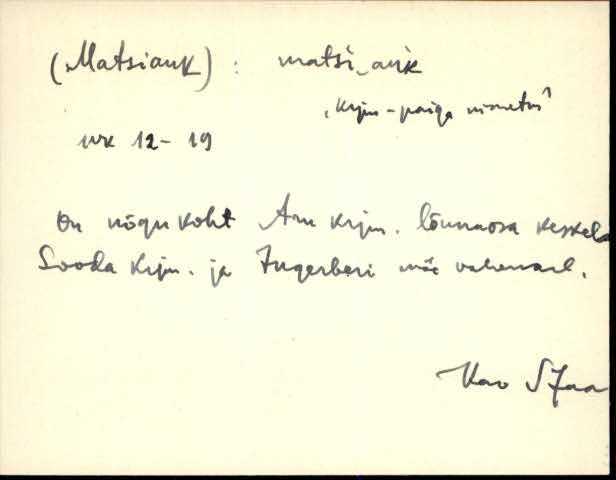 (Matsiauk) : matsi_auk
"krjm - paiga nimetus"
nr 12 - 19
On nõgu koht Aru krjm. lõunaosa keskel
Sooda krjm. ja Jugerberi mäe vahemail.